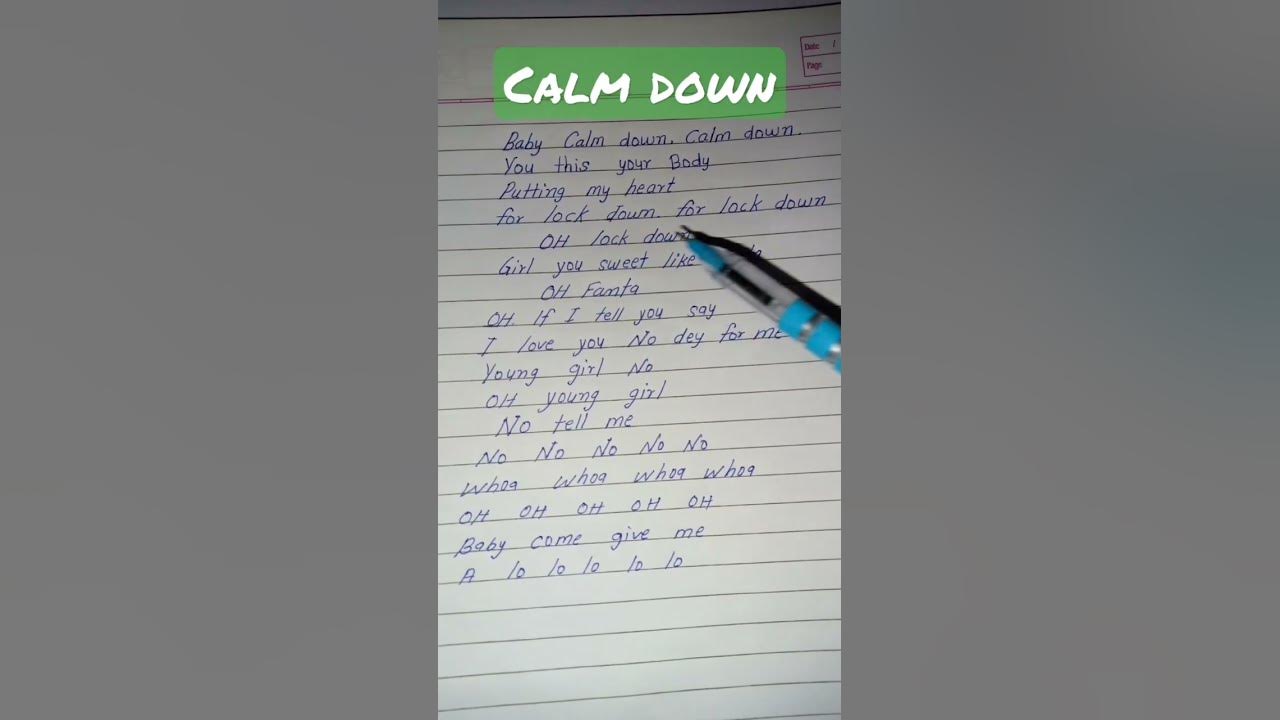 Date /
Page
CALM DOWN
Baby Calm down, Calm down.
You this your Body
Putting my heart
for lock down. for lock down
OH lock down
Girl you sweet like
OH Fanta
OH. If I tell you say
I love you No dey for me
Young girl No
OH young girl
No tell me
No No No No No
Whoa whoa whoa whoa
OH OH OH OH OH
Baby come give me
A lo lo lo lo lo